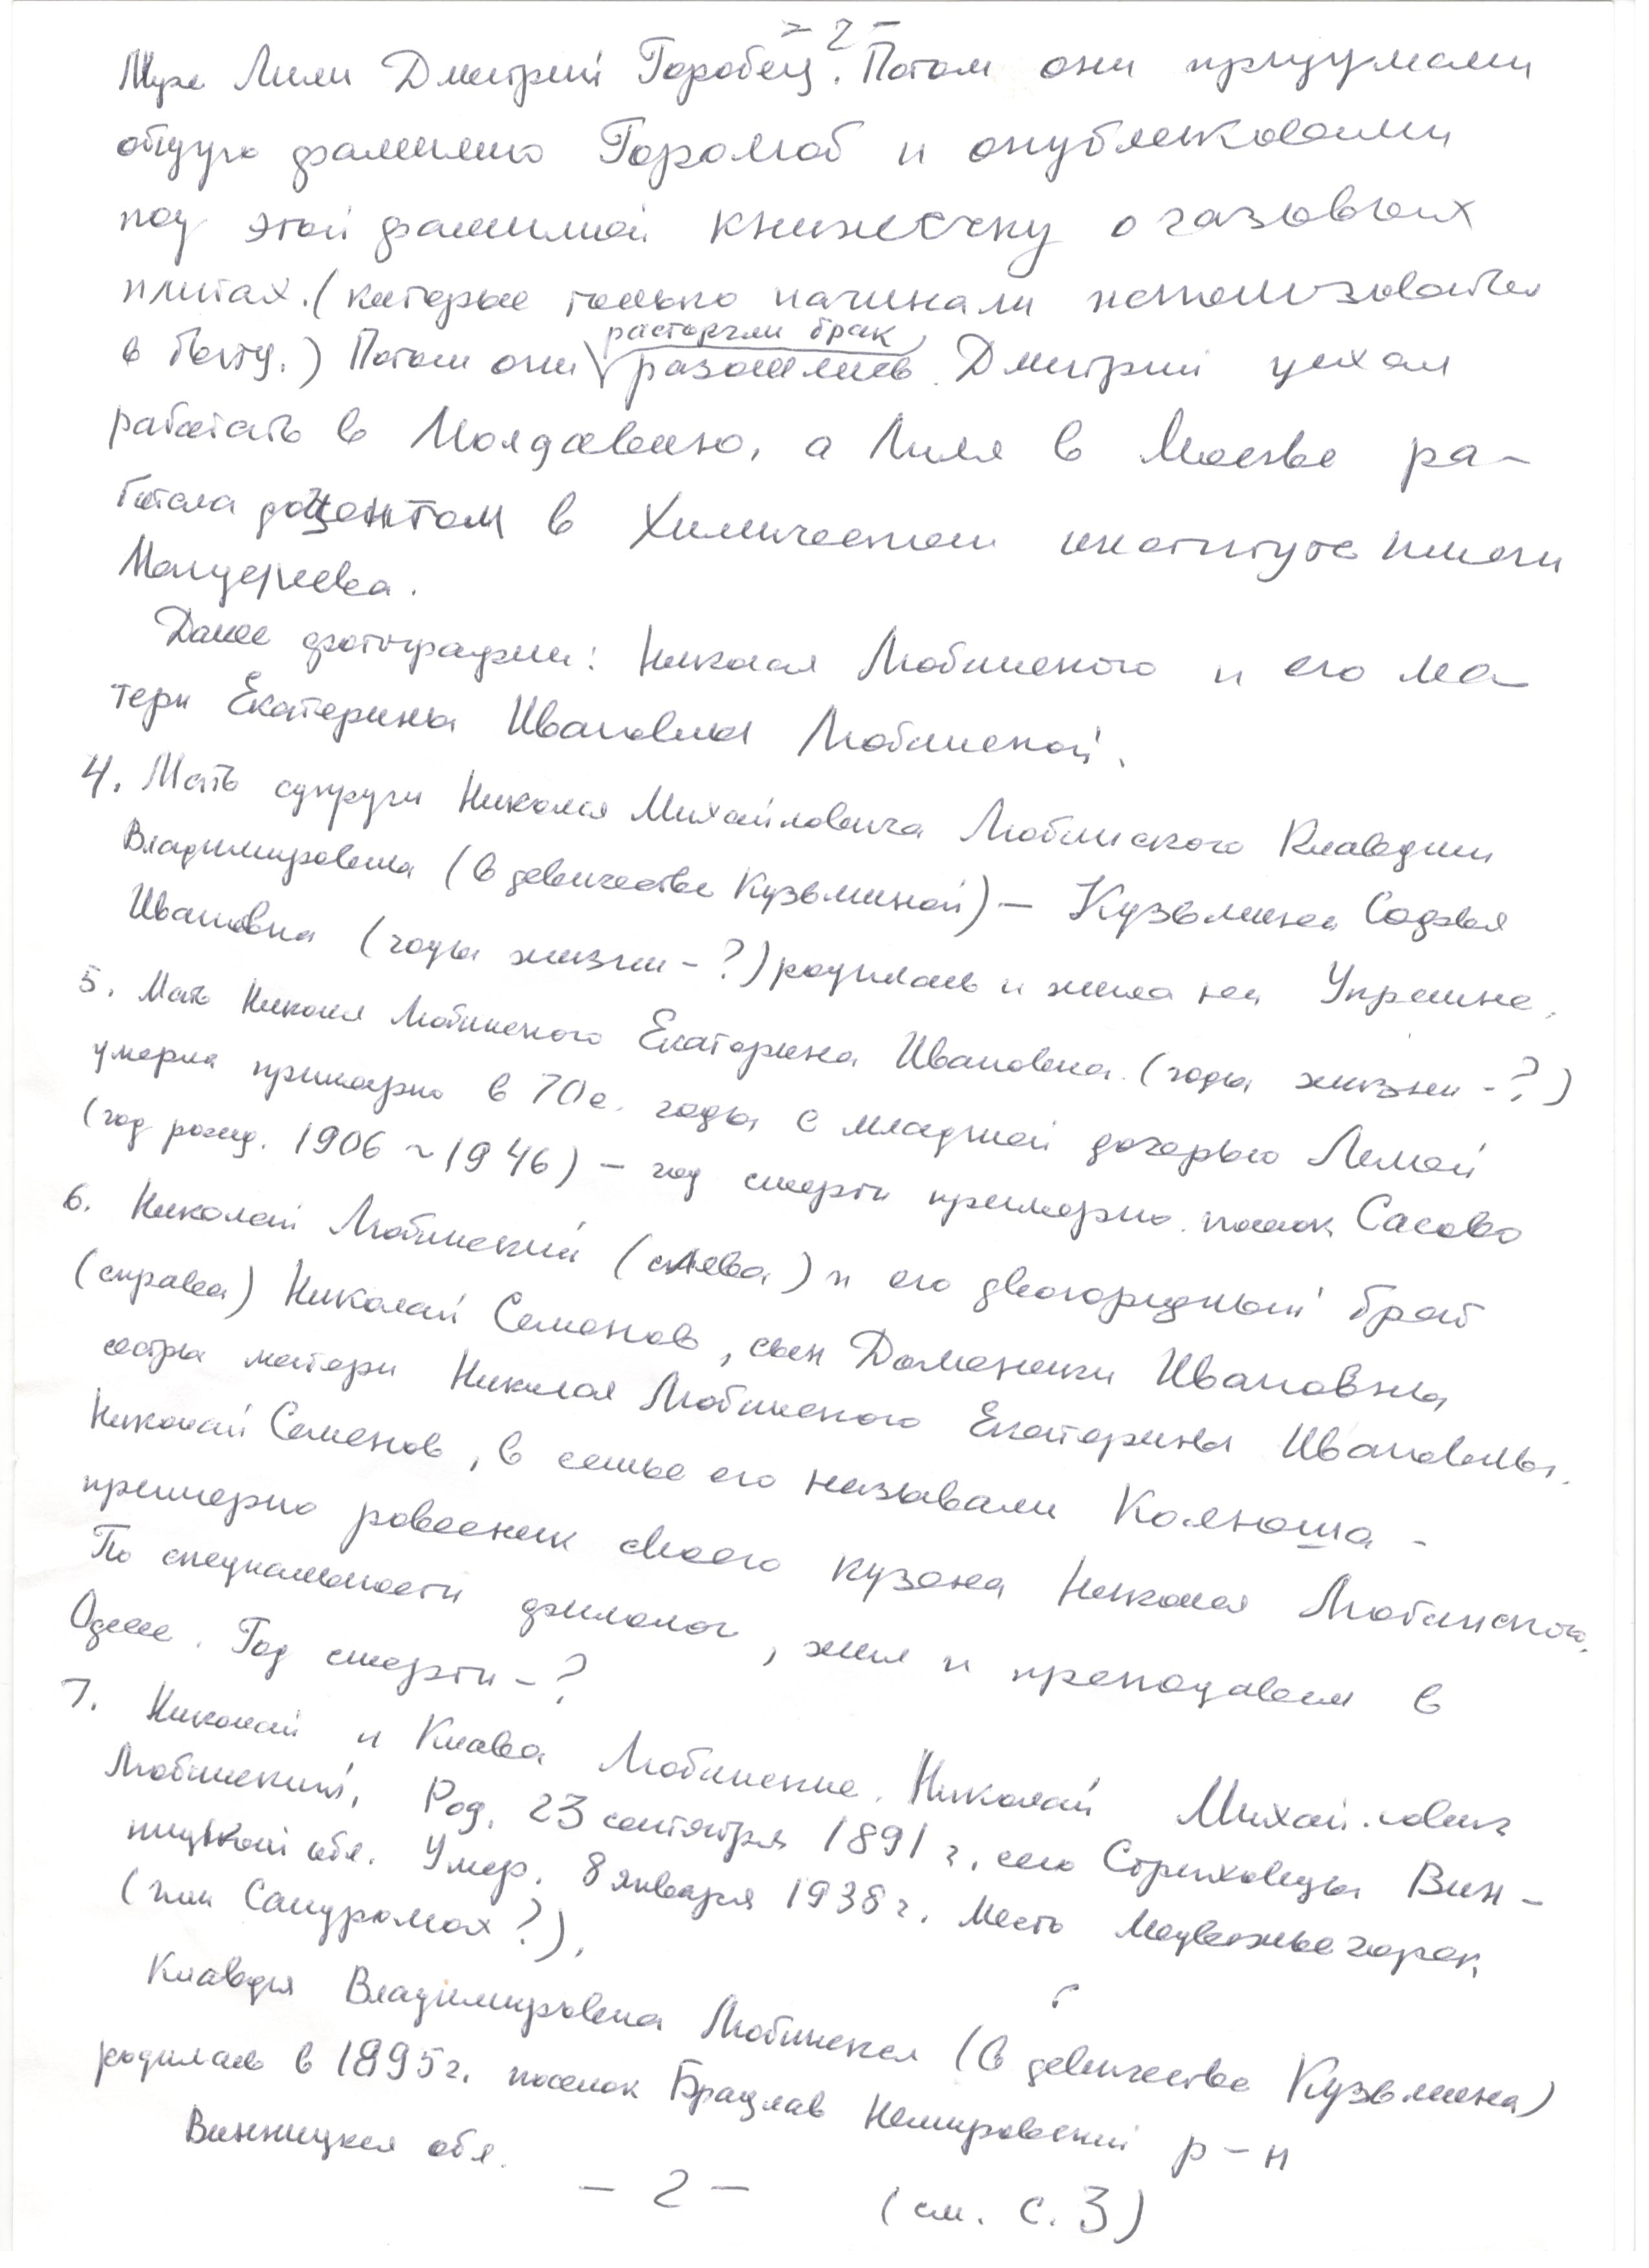 - 2 -
Муж Лили Дмитрий Горобец. Потом они придумали
общую фамилию Горолюб и опубликовали
под этой фамилией книжечку о газовых
плитах. (которые только начинали использоваться
в быту.) Потом они расторгли брак
разошлись. Дмитрий уехал
работать в Молдавию, а Лиля в Москве ра-
ботала доцентом в Химическом институте имени
Менделеева.
Далее фотографии: Николая Любинского и его ма-
тери Екатерины Ивановны Любинской.
4. Мать супруги Николая Михайловича Любинского Клавдии
Владимировны (в девичестве Кузьминой) – Кузьмина Софья
Ивановна (годы жизни - ?) родилась и жила на Украине.
5. Мать Николая Любинского Екатерина Ивановна. (годы жизни - ?)
умерла примерно в 70е. годы с младшей дочерью Лилей
(год рожд. 1906 ~ 1946) – год смерти примерно. поселок Сасово
6. Николай Любинский (слева) и его двоюродный брат
(справа) Николай Семенов, сын Доменики Ивановны
сестры матери Николая Любинского Екатерины Ивановны.
Николай Семенов, в семье его называли Колюша -
примерно ровесник своего кузена Николая Любинского.
По специальности филолог, жил и преподавал в
Одессе. Год смерти - ?
7. Николай и Клава Любинские. Николай Михайлович
Любинский, Род. 23 сентября 1891 г. село Стриховцы Вин-
ницкой обл. Умер. 8 января 1938 г. Место Медвежьегорск
(или Сандромах?).
Клавдия Владимировна Любинская (в девичестве Кузьмина)
родилась в 1895 г. поселок Брацлав Немировский р-н
Винницкая обл.
- 2 - (см. с. 3)